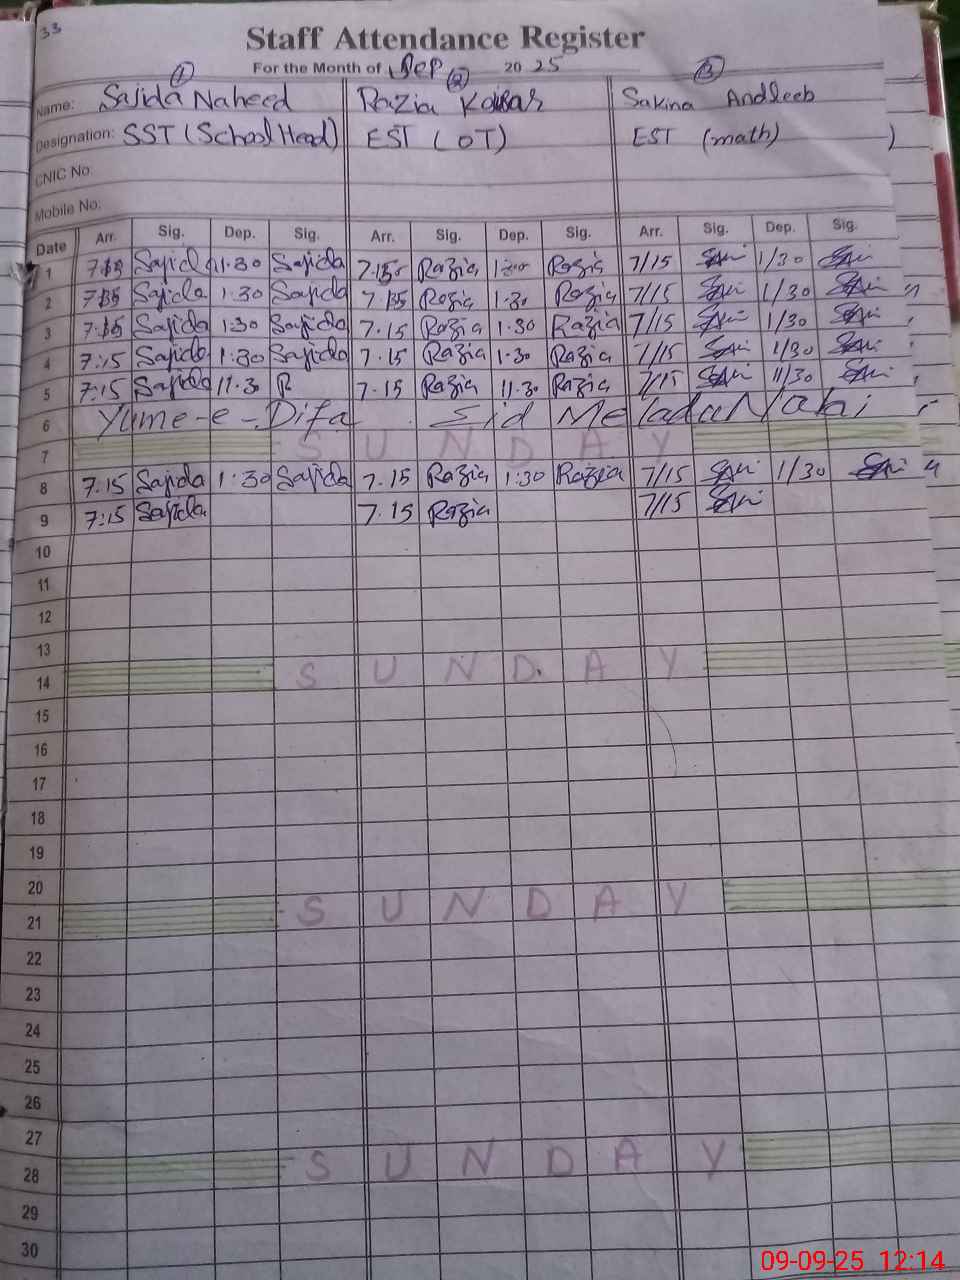 33
Staff Attendance Register
For the Month of Sep 2025
1 2 3
Name: Sajida Naheed Razia Kousar Sakina Andleeb
Designation: SST (School Head) EST (OT) EST (math) )
CNIC No:
Mobile No:
Date Arr. Sig. Dep. Sig. Arr. Sig. Dep. Sig. Arr. Sig. Dep. Sig.
1 7:15 Sajida 1:30 Sajida 7.15 Razia Razia 7/15 1/30
2 7:15 Sajida 1:30 Sajida 7.15 Razia 1:30 Razia 7/15 1/30
3 7:15 Sajida 1:30 Sajida 7.15 Razia 1:30 Razia 7/15 1/30
4 7:15 Sajida 1:30 Sajida 7.15 Razia 1.30 Razia 7/15 1/30
5 7:15 Sajida 11.30 7.15 Razia 11.30 Razia 7/15 11/30
6 Yume-e-Difa Eid Meladu Nabi
7 SUNDAY
8 7:15 Sajida 1:30 Sajida 7.15 Razia 1:30 Razia 7/15 1/30
9 7:15 Sajida 7.15 Razia 7/15
10
11
12
13
14 SUNDAY
15
16
17
18
19
20
21 SUNDAY
22
23
24
25
26
27
28 SUNDAY
29
30
09-09-25 12:14